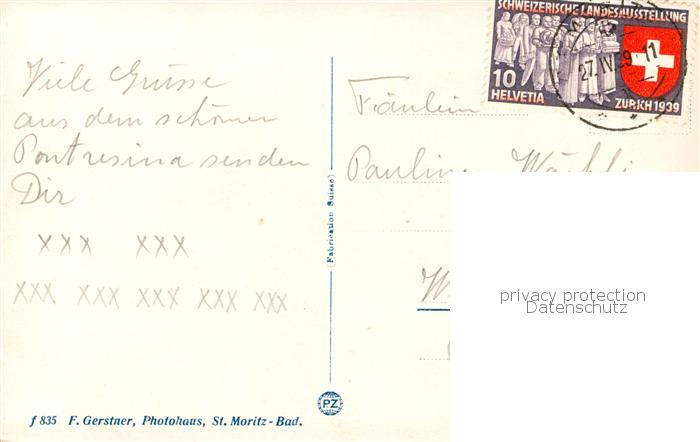 Viele Grüsse
aus dem schönen
Pontresina senden
Dir
XXX XXX
XXX XXX XXX XXX XXX
f 835 F. Gerstner, Photohaus, St. Moritz-Bad.
(Fabrication Suisse)
PZ
SCHWEIZERISCHE LANDESAUSSTELLUNG
10
HELVETIA
ZÜRICH 1939
27.IV.39.11
Fräulein
Pauline
privacy protection
Datenschutz